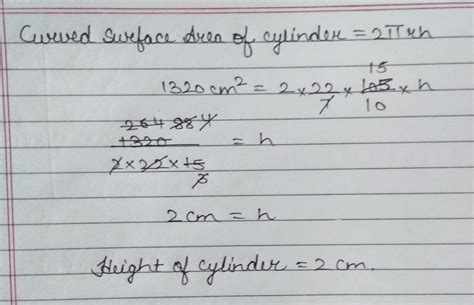 Curved Surface Area of cylinder = 2πrh
15
1320 cm² = 2 × 22/7 × 105/10 × h
264 88 4
1320 / 2 × 22 × 15 = h
5
2 cm = h
Height of cylinder = 2 cm.